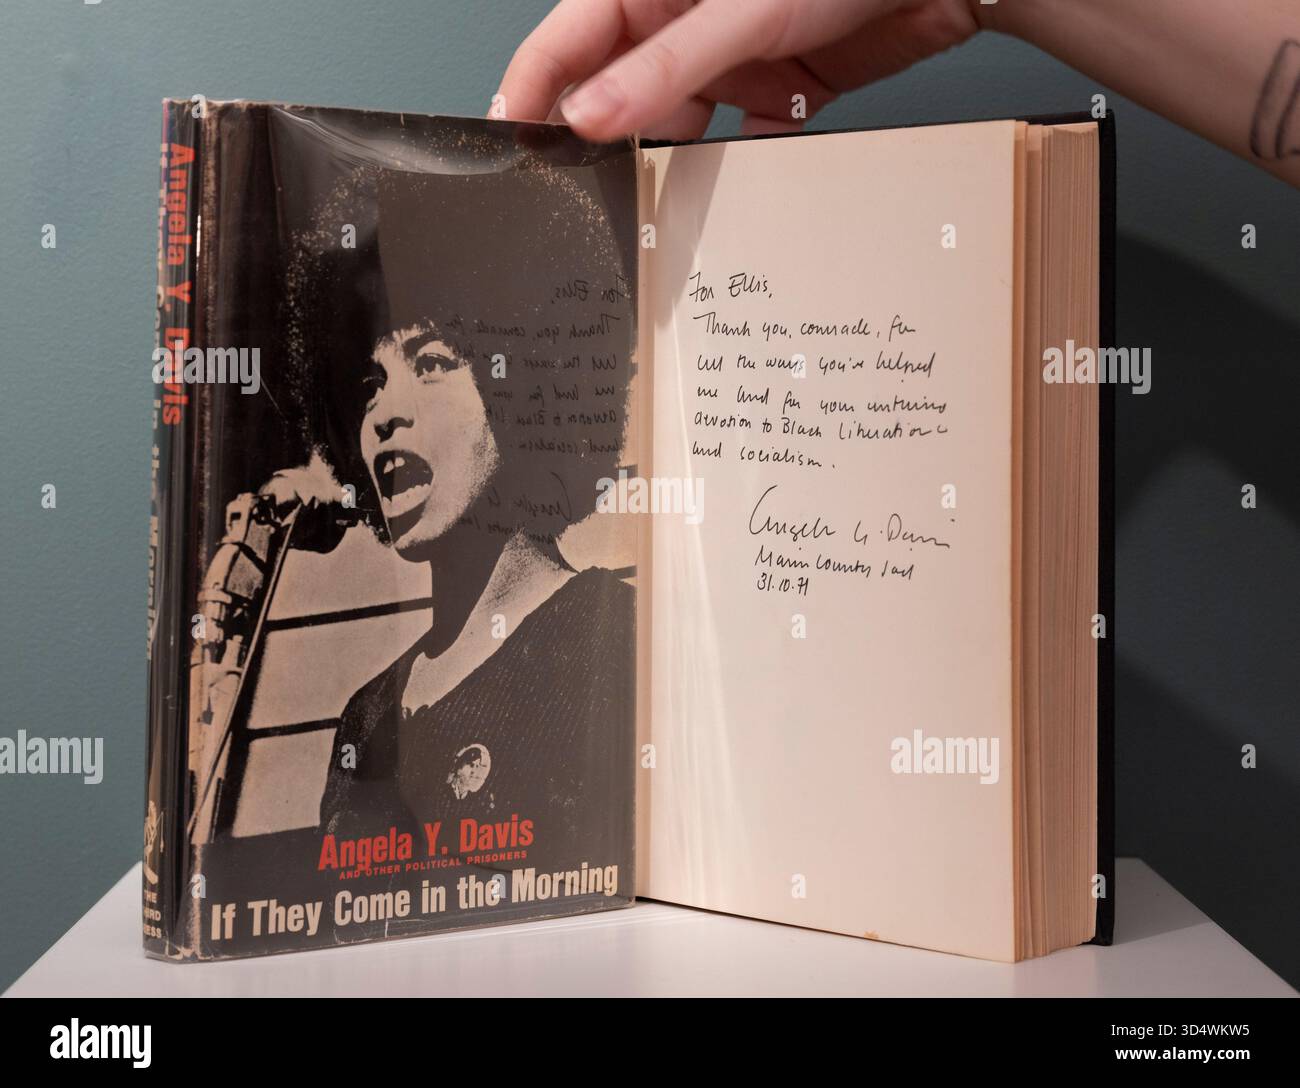 Angela Y. Davis
If They Come in the Morning
THE
THIRD
PRESS
Angela Y. Davis
AND OTHER POLITICAL PRISONERS
If They Come in the Morning
For Ellis,
Thank you, comrade, for
all the ways you've helped
me and for your untiring
devotion to Black Liberation
and socialism.
Angela Y. Davis
Marin County Jail
31.10.71
alamy
alamy
alamy
alamy
Image ID: 3D4WKW5
www.alamy.com